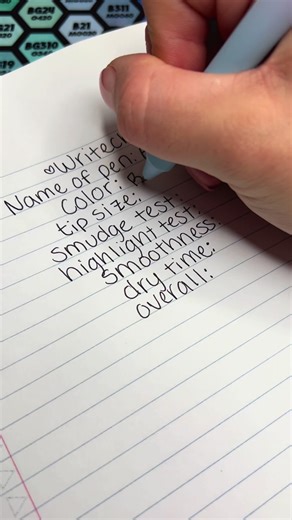 BG24
B311
B21
BG310
♡Writec
Name of pen:
color: B
tip size:
smudge test:
highlight test:
smoothness:
dry time:
overall: